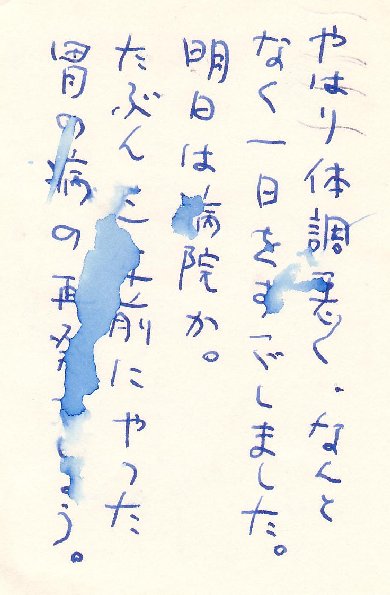 やはり体調悪く、なんと
なく一日をすごしました。
明日は病院か。
たぶん前にやった
胃の病の再発でしょう。